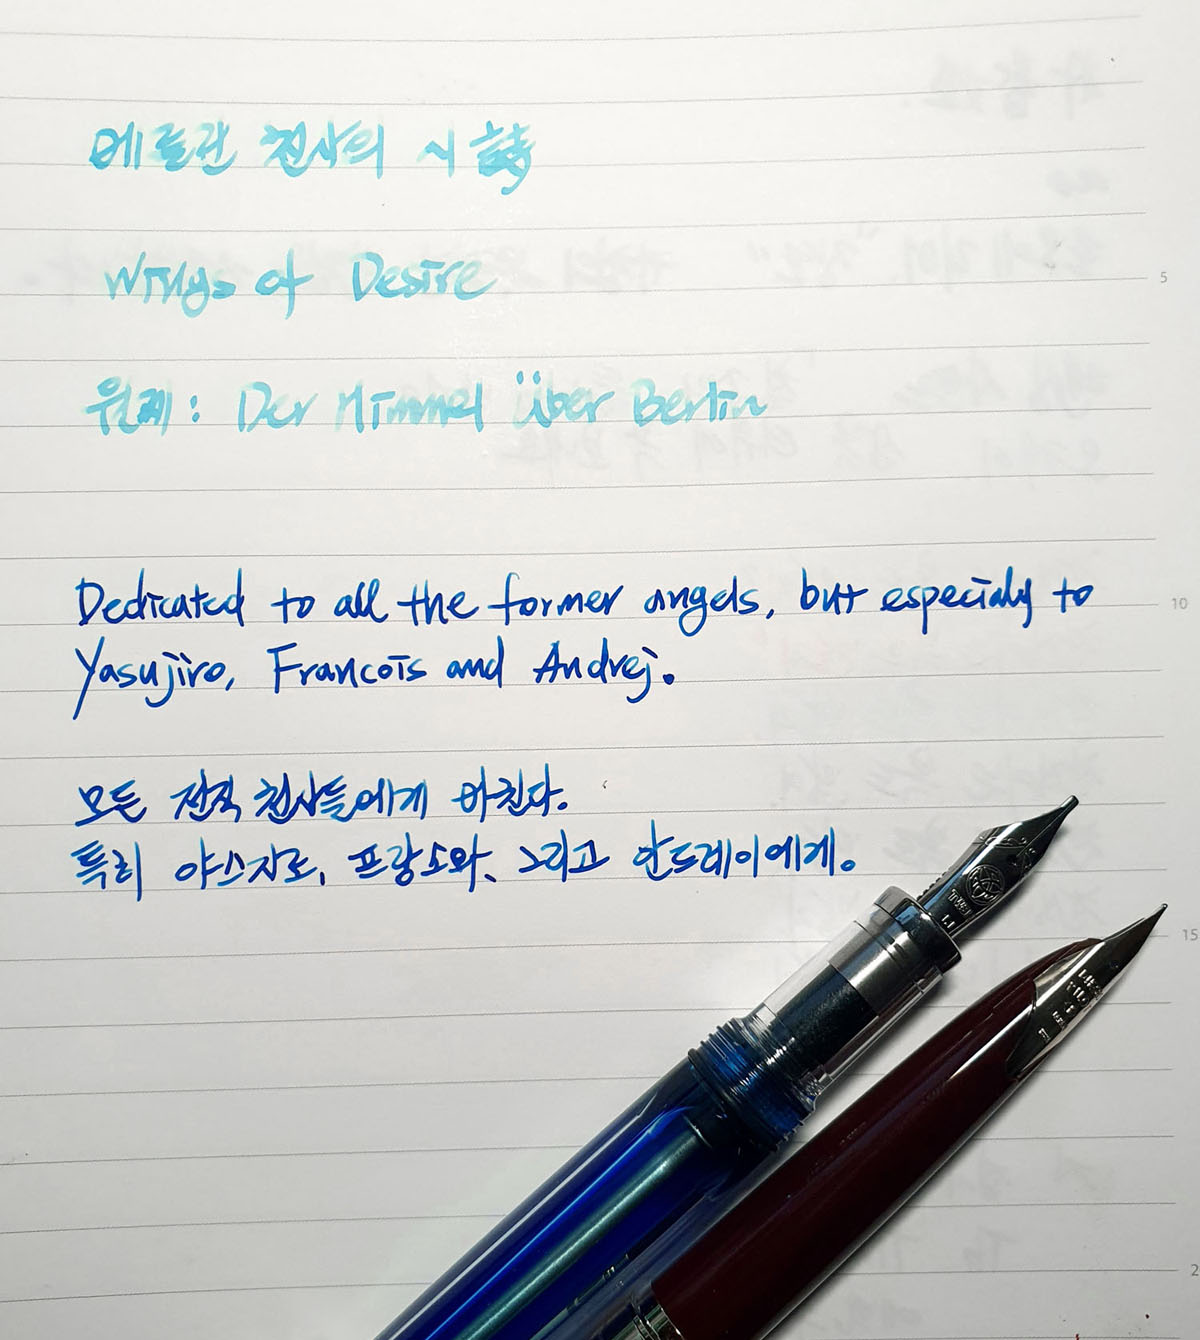 베를린 천사의 시 詩
Wings of Desire
5
원제: Der Himmel Über Berlin
Dedicated to all the former angels, but especialy to
10
Yasujiro, Francois and Andrej.
모든 전직 천사들에게 바친다.
특히 야스지로, 프랑소와, 그리고 안드레이에게.
1.1
15